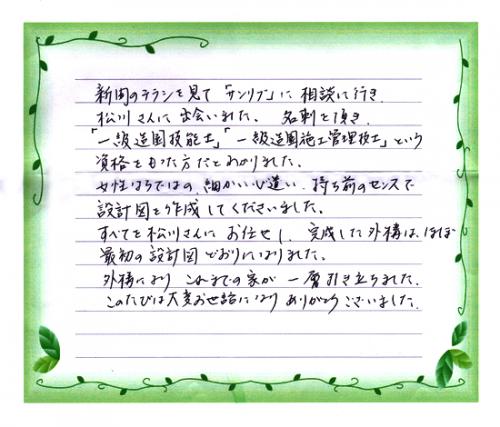 新聞のチラシを見て「サンリブ」に相談に行き、
松川さんに出会いました。名刺を頂き、
「一級造園技能士」「一級造園施工管理技士」という
資格をもった方だとわかりました。
女性ならではの、細かい心遣い、持ち前のセンスで
設計図を作成してくださいました。
すべてを松川さんにお任せし、完成した外構は、ほぼ
最初の設計図どおりになりました。
外構により これまでの家が 一層引き立ちました。
このたびは大変お世話になり ありがとうございました。